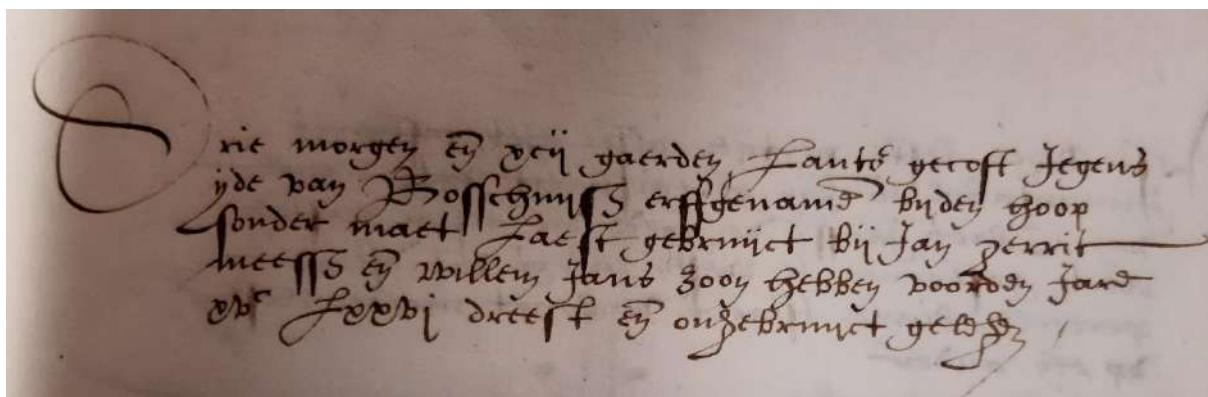 Drie morgen eñ xcij gaerden Lants gecost Jegens
ijde van Bosschuijsz erffgenamē bijden hoop
sonder maet Laest gebruijct bij Jan gerrit
meessz eñ willem Jans zoon hebben voorden Jare
xvc Lxxvj dreest eñ ongebruijct geleg